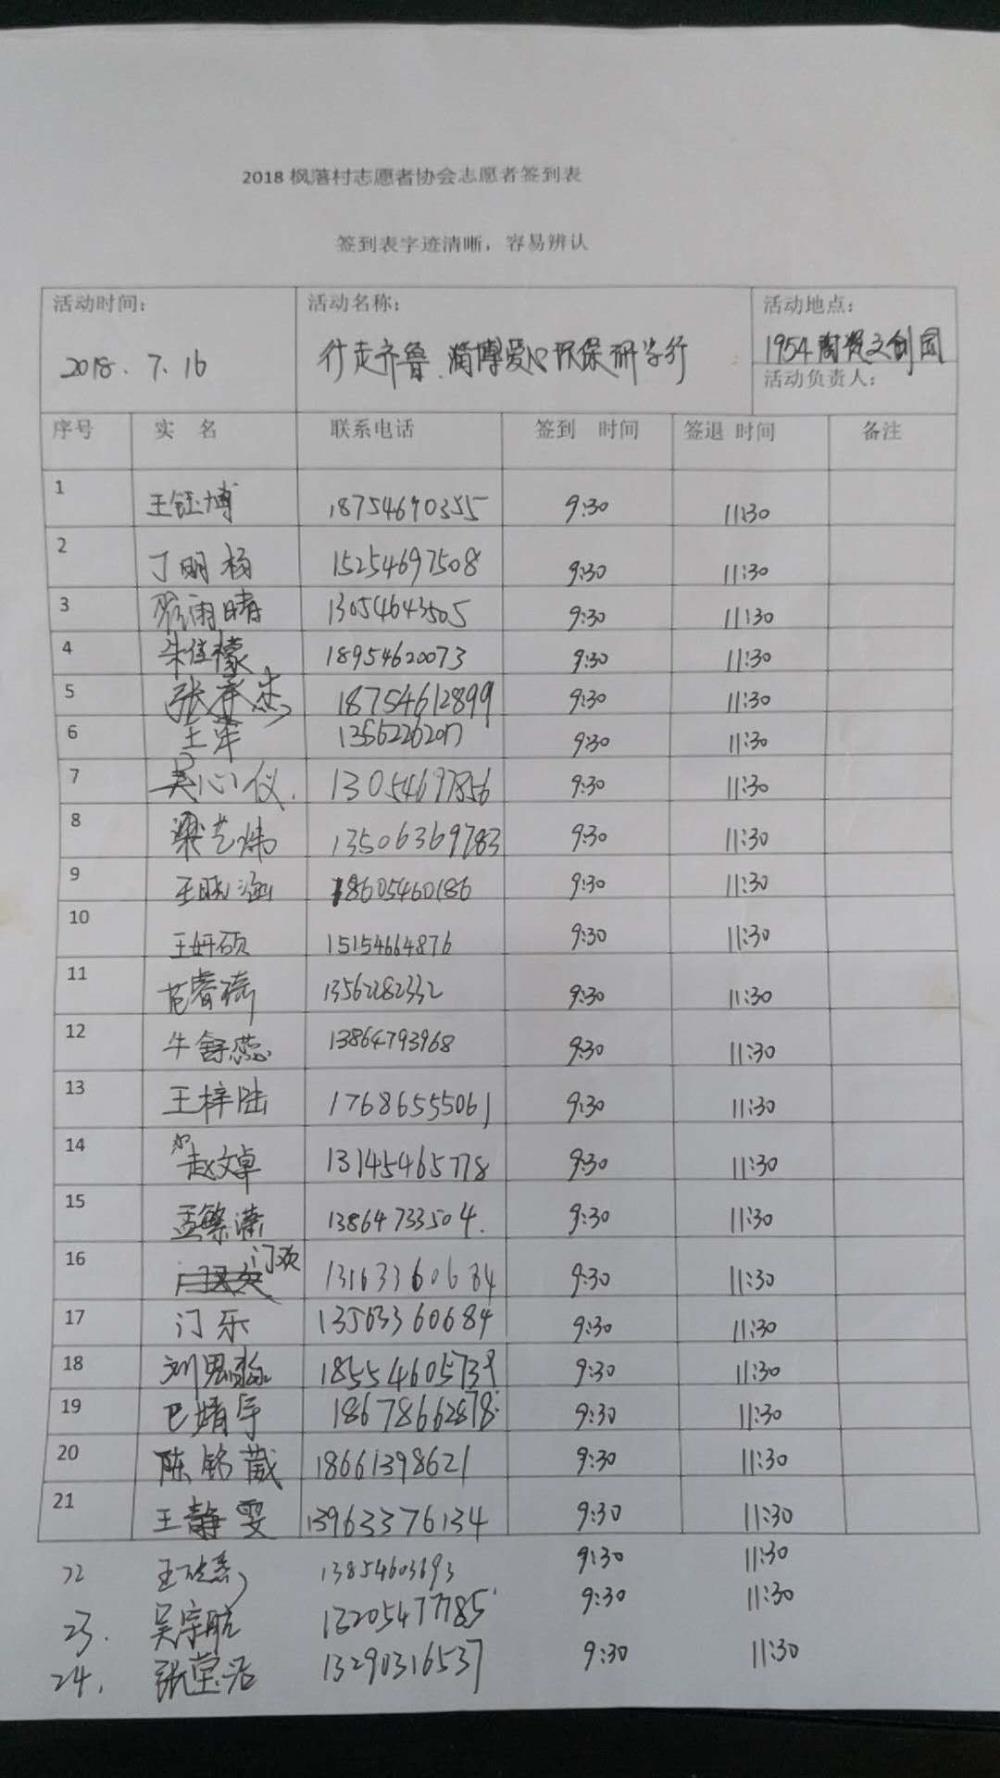 2018 枫落村志愿者协会志愿者签到表
签到表字迹清晰，容易辨认
活动时间： 活动名称： 活动地点：
2018.7.16 行走齐鲁.淄博爱心环保研学行 1954陶瓷文创园
活动负责人：
序号 实 名 联系电话 签到 时间 签退 时间 备注
1 王钰博 18754690355 9:30 11:30
2 丁明杨 15254697508 9:30 11:30
3 雨晴 13054643505 9:30 11:30
4 朱佳檬 18954620073 9:30 11:30
5 张孝杰 18754612899 9:30 11:30
6 王军 9:30 11:30
7 吴心仪. 13054697856 9:30 11:30
8 梁艺炜 13506369783 9:30 11:30
9 王晓涵 18605460186 9:30 11:30
10 王妍硕 15154664876 9:30 11:30
11 范睿 13562282332 9:30 11:30
12 牛舒蕊 13864793968 9:30 11:30
13 王梓陆 17686555061 9:30 11:30
14 赵文卓 13145465778 9:30 11:30
15 孟繁潇 13864733504. 9:30 11:30
16 门欢 13163360684 9:30 11:30
17 门乐 13563360684 9:30 11:30
18 刘思 18554605739 9:30 11:30
19 巴婧宇 18678662878 9:30 11:30
20 陈铭葳 18661398621 9:30 11:30
21 王静雯 13963376134 9:30 11:30
22 王 13854603693 9:30 11:30
23. 吴宗航 13205477785 9:30 11:30
24. 张莹洁 13290316537 9:30 11:30